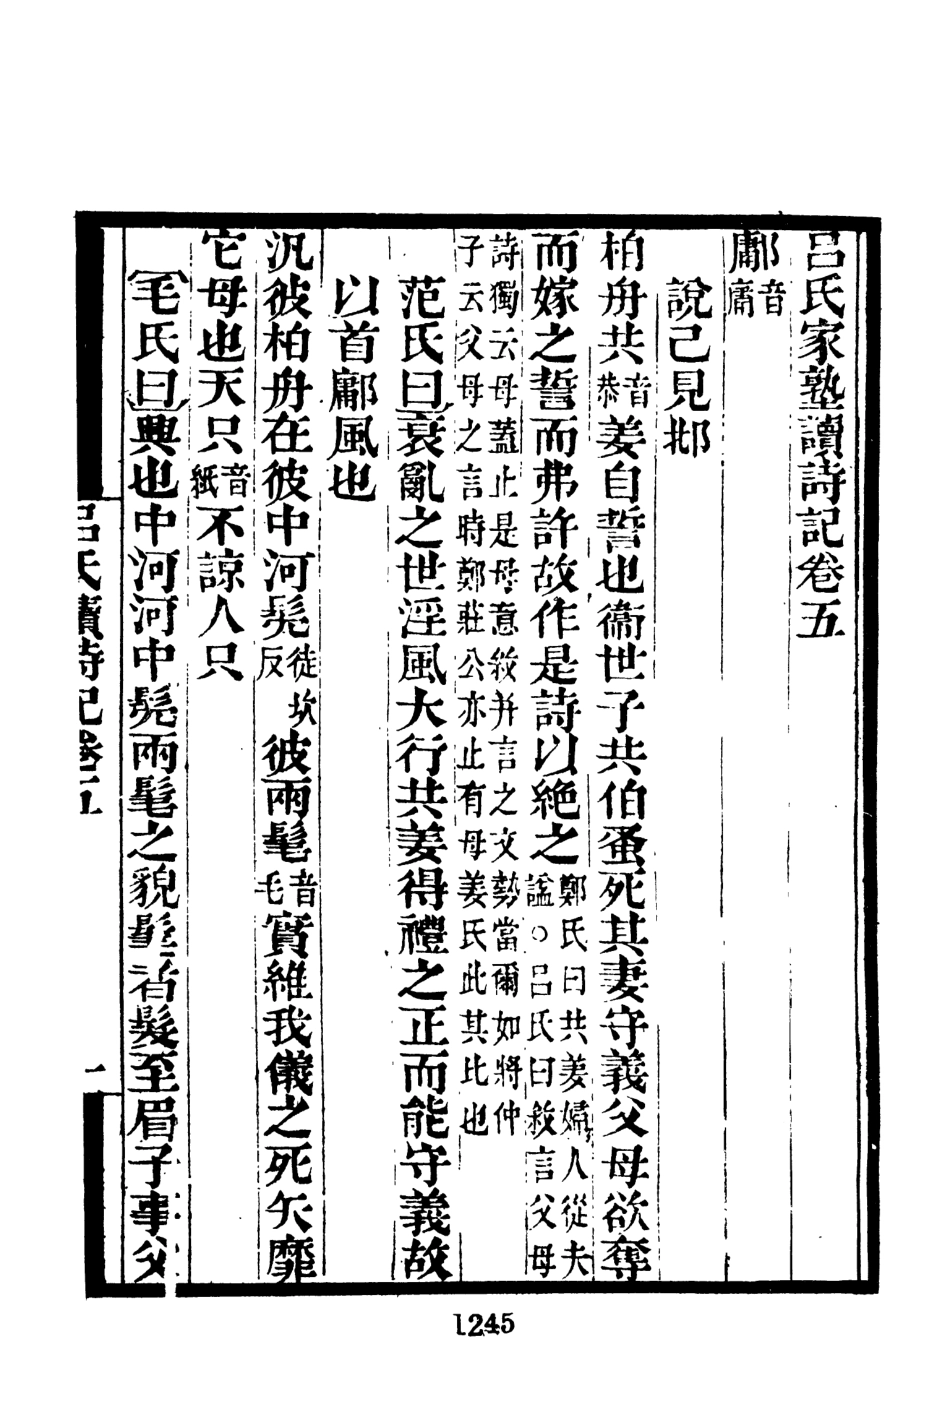 呂氏家塾讀詩記卷五
鄘音庸
說己見邶
柏舟共音恭姜自誓也衞世子共伯蚤死其妻守義父母欲奪
而嫁之誓而弗許故作是詩以絶之鄭氏曰共姜婦人從夫諡○呂氏曰敘言父母
詩獨云母蓋止是母意敘并言之文勢當爾如將仲子云父母之言時鄭莊公亦止有母姜氏此其比也
范氏曰衰亂之世淫風大行共姜得禮之正而能守義故
以首鄘風也
汎彼柏舟在彼中河髧徒坎反彼兩髦音毛實維我儀之死矢靡
它母也天只音紙不諒人只
毛氏曰興也中河河中髧兩髦之貌髦者髮至眉子事父
呂氏讀詩記卷五
一
1245